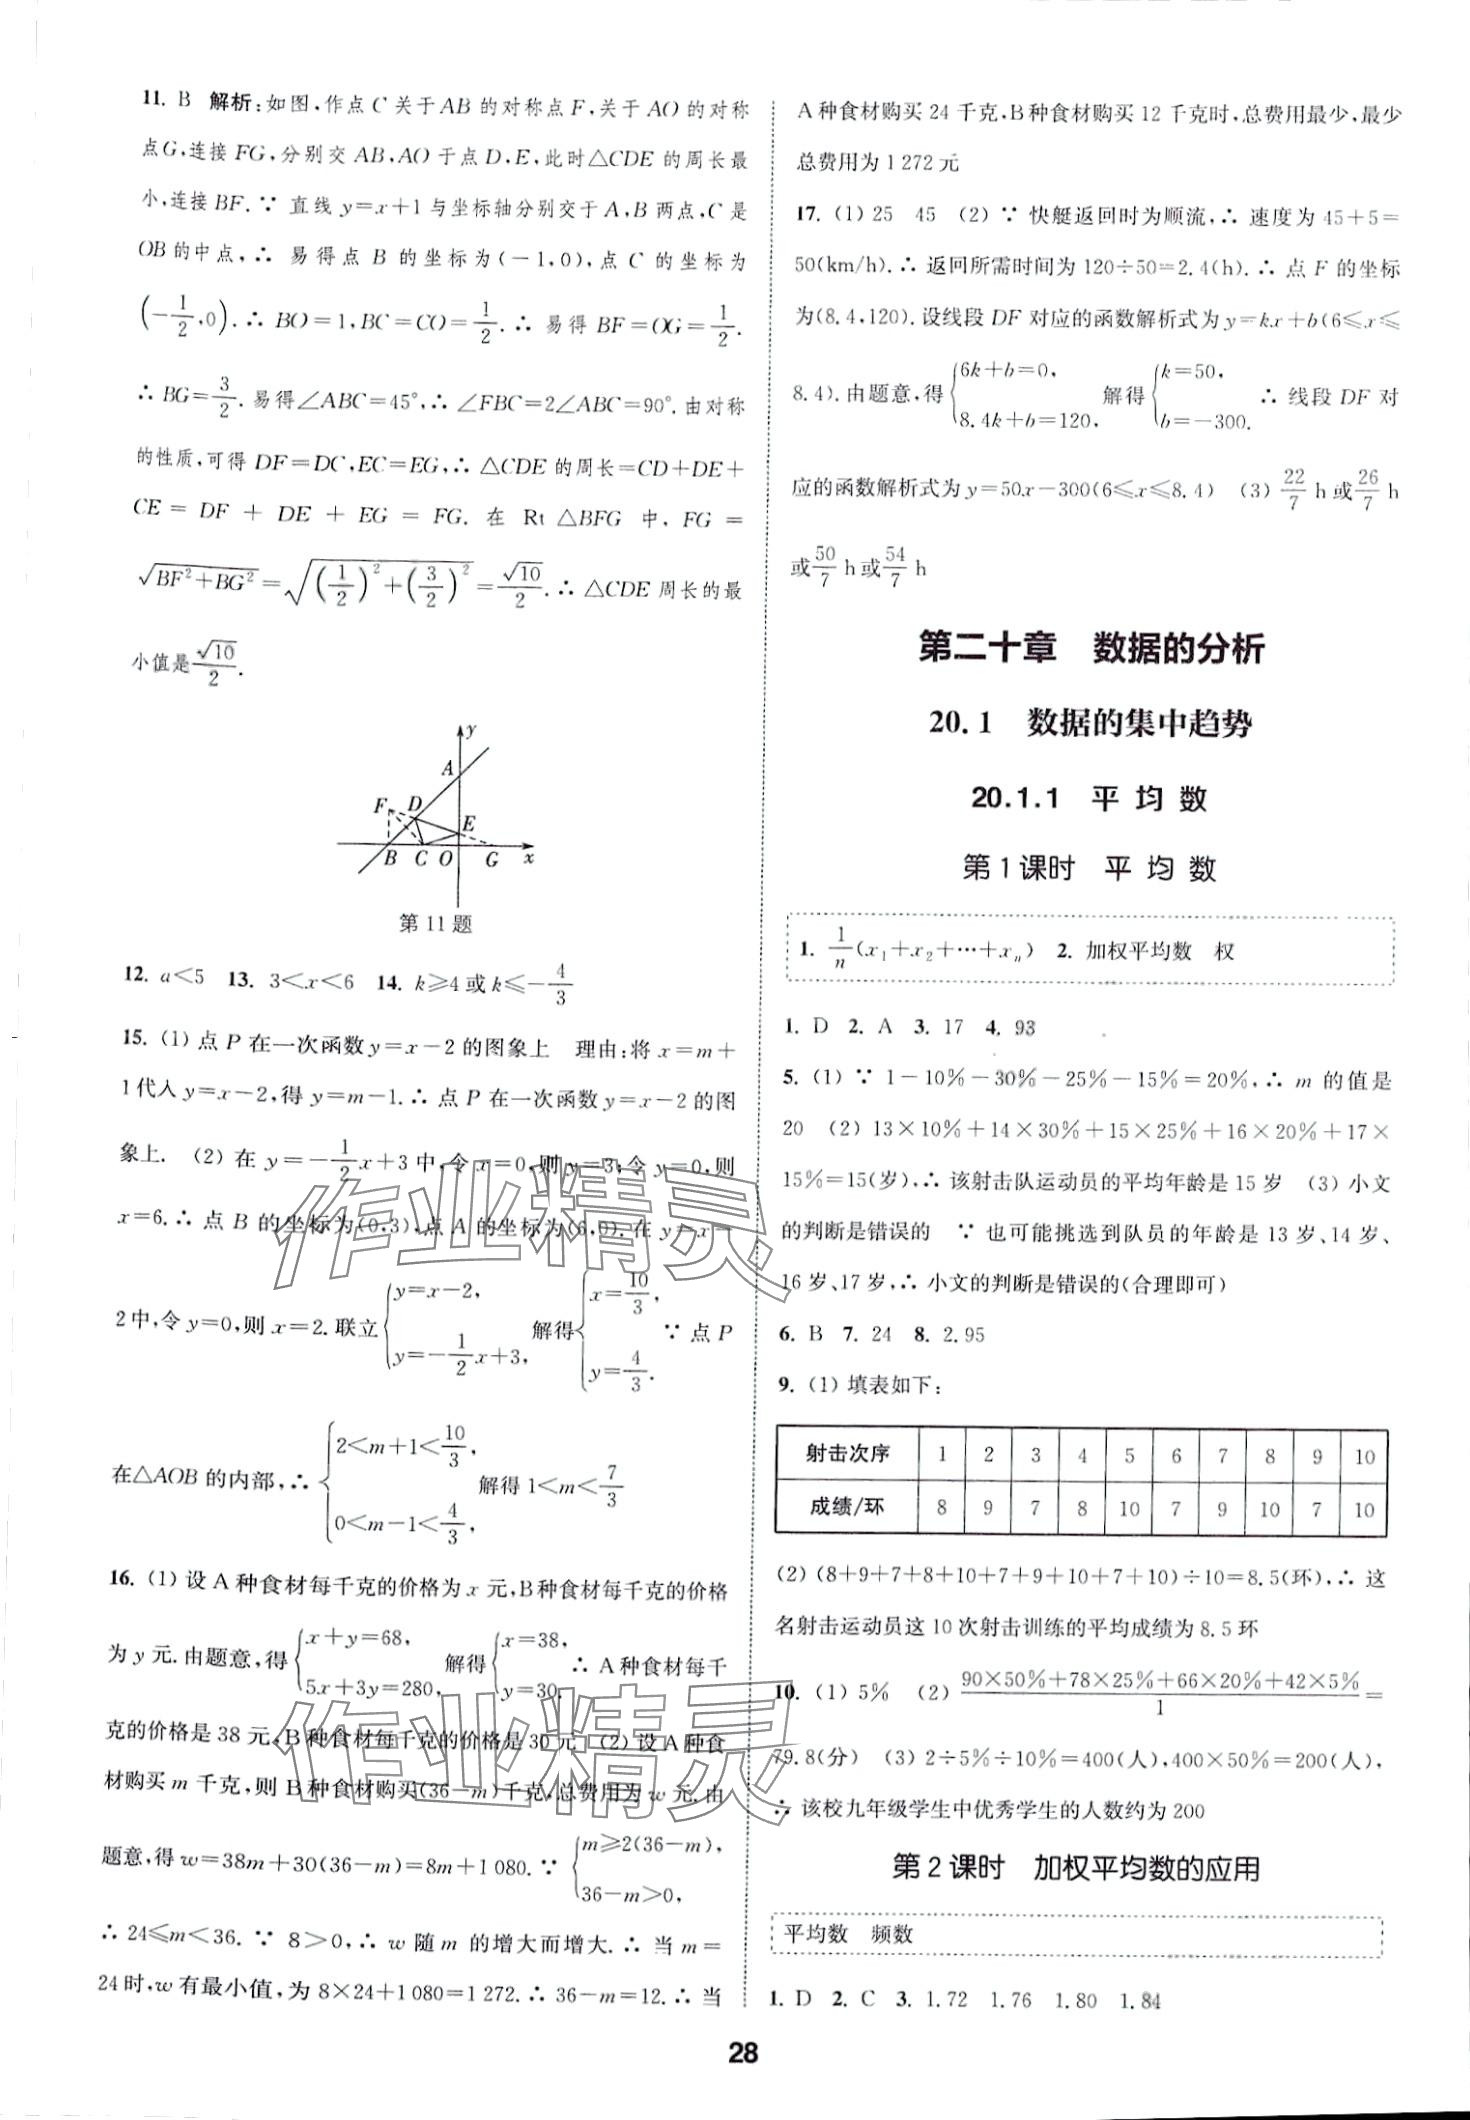 11. B 解析:如图,作点 C 关于 AB 的对称点 F,关于 AO 的对称
点G,连接 FG,分别交 AB,AO 于点 D,E,此时△CDE 的周长最
小,连接 BF.∵ 直线 y=x+1 与坐标轴分别交于 A,B 两点,C 是
OB 的中点,∴ 易得点 B 的坐标为(-1,0),点 C 的坐标为
(-1/2,0).∴ BO=1,BC=CO=1/2.∴ 易得 BF=OG=1/2.
∴ BG=3/2.易得∠ABC=45°,∴ ∠FBC=2∠ABC=90°.由对称
的性质,可得 DF=DC,EC=EG,∴ △CDE 的周长=CD+DE+
CE = DF + DE + EG = FG. 在 Rt △BFG 中, FG =
√(BF²+BG²)=√((1/2)²+(3/2)²)=√10/2.∴ △CDE 周长的最
小值是√10/2.
y
A
F D
E
B C O G x
第 11 题
12. a<5 13. 3<x<6 14. k≥4 或 k≤-4/3
15. (1) 点 P 在一次函数 y=x-2 的图象上 理由:将 x=m+
1代入 y=x-2,得 y=m-1.∴ 点 P 在一次函数 y=x-2 的图
象上. (2) 在 y=-1/2x+3 中,令 x=0,则 y=3;令 y=0,则
x=6.∴ 点 B 的坐标为(0,3),点 A 的坐标为(6,0).在 y=x-
2 中,令 y=0,则 x=2.联立{y=x-2, y=-1/2x+3, 解得{x=10/3, y=4/3. ∵ 点 P
在△AOB 的内部,∴ {2<m+1<10/3, 0<m-1<4/3, 解得 1<m<7/3
16. (1) 设 A 种食材每千克的价格为 x 元,B 种食材每千克的价格
为 y 元.由题意,得{x+y=68, 5x+3y=280, 解得{x=38, y=30. ∴ A 种食材每千
克的价格是 38 元,B 种食材每千克的价格是 30 元 (2) 设 A 种食
材购买 m 千克,则 B 种食材购买(36-m)千克,总费用为 w 元.由
题意,得 w=38m+30(36-m)=8m+1 080.∵ {m≥2(36-m), 36-m>0,
∴ 24≤m<36.∵ 8>0,∴ w 随 m 的增大而增大.∴ 当 m=
24 时,w 有最小值,为 8×24+1 080=1 272.∴ 36-m=12.∴ 当
A 种食材购买 24 千克,B 种食材购买 12 千克时,总费用最少,最少
总费用为 1 272 元
17. (1) 25 45 (2) ∵ 快艇返回时为顺流,∴ 速度为 45+5=
50(km/h).∴ 返回所需时间为 120÷50=2.4(h).∴ 点 F 的坐标
为(8.4,120).设线段 DF 对应的函数解析式为 y=kx+b(6≤x≤
8.4).由题意,得{6k+b=0, 8.4k+b=120, 解得{k=50, b=-300. ∴ 线段 DF 对
应的函数解析式为 y=50x-300(6≤x≤8.4) (3) 22/7 h 或 26/7 h
或 50/7 h 或 54/7 h
第二十章 数据的分析
20.1 数据的集中趋势
20.1.1 平 均 数
第 1 课时 平 均 数
1. 1/n(x₁+x₂+…+xₙ) 2. 加权平均数 权
1. D 2. A 3. 17 4. 93
5. (1) ∵ 1-10%-30%-25%-15%=20%,∴ m 的值是
20 (2) 13×10%+14×30%+15×25%+16×20%+17×
15%=15(岁),∴ 该射击队运动员的平均年龄是 15 岁 (3) 小文
的判断是错误的 ∵ 也可能挑选到队员的年龄是 13 岁、14 岁、
16 岁、17 岁,∴ 小文的判断是错误的(合理即可)
6. B 7. 24 8. 2.95
9. (1) 填表如下:
射击次序 1 2 3 4 5 6 7 8 9 10
成绩/环 8 9 7 8 10 7 9 10 7 10
(2) (8+9+7+8+10+7+9+10+7+10)÷10=8.5(环),∴ 这
名射击运动员这 10 次射击训练的平均成绩为 8.5 环
10. (1) 5% (2) (90×50%+78×25%+66×20%+42×5%)/1 =
79.8(分) (3) 2÷5%÷10%=400(人),400×50%=200(人),
∴ 该校九年级学生中优秀学生的人数约为 200
第 2 课时 加权平均数的应用
平均数 频数
1. D 2. C 3. 1.72 1.76 1.80 1.84
28
作业精灵
作业精灵